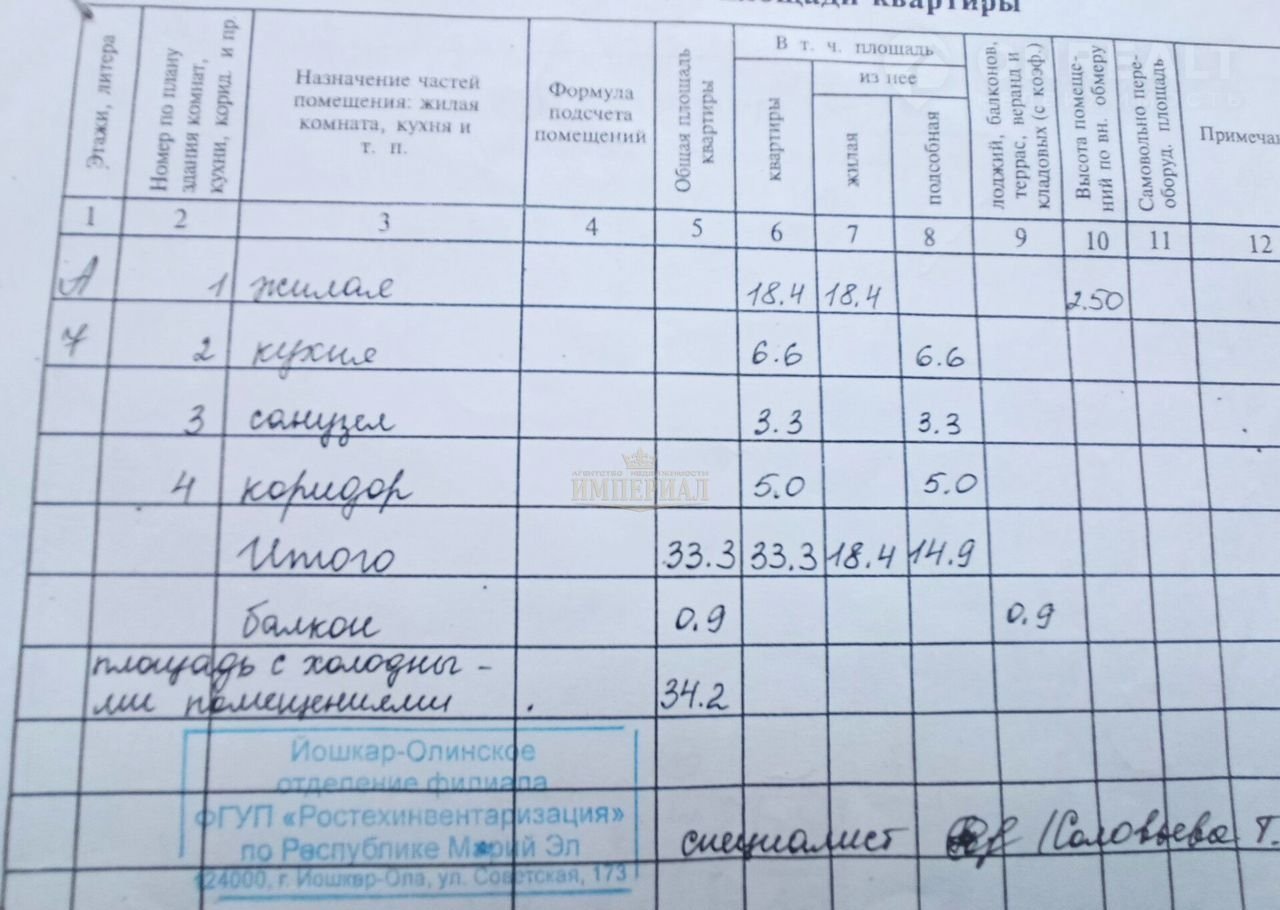 площади квартиры
Этажи, литера
Номер по плану
здания комнат,
кухни, корид. и пр
Назначение частей
помещения: жилая
комната, кухня и
т. п.
Формула
подсчета
помещений
Общая площадь
квартиры
В т. ч. площадь
из нее
квартиры
жилая
подсобная
лоджий, балконов,
террас, веранд и
кладовых (с коэф.)
Высота помеще-
ний по вн. обмеру
Самовольно пере-
оборуд. площадь
Примеча
1 2 3 4 5 6 7 8 9 10 11 12
А 1 жилая 18.4 18.4 2.50
7 2 кухня 6.6 6.6
3 санузел 3.3 3.3
4 коридор 5.0 5.0
Итого 33.3 33.3 18.4 14.9
балкон 0.9 0.9
площадь с холодны-
ми помещениями 34.2
агентство недвижимости
ИМПЕРИАЛ
Йошкар-Олинское
отделение филиала
ФГУП «Ростехинвентаризация»
по Республике Марий Эл
424000, г. Йошкар-Ола, ул. Советская, 173
специалист /Соловьева Т.